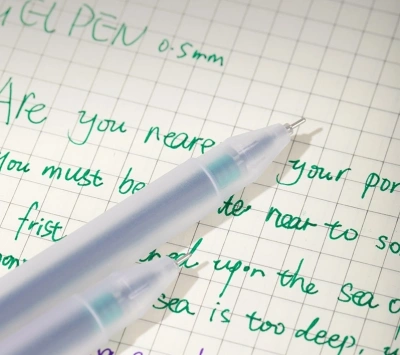 GEL PEN 0.5mm
Are you neare your por
You must be ter near to so
frist ned upon the sea
sea is too deep,